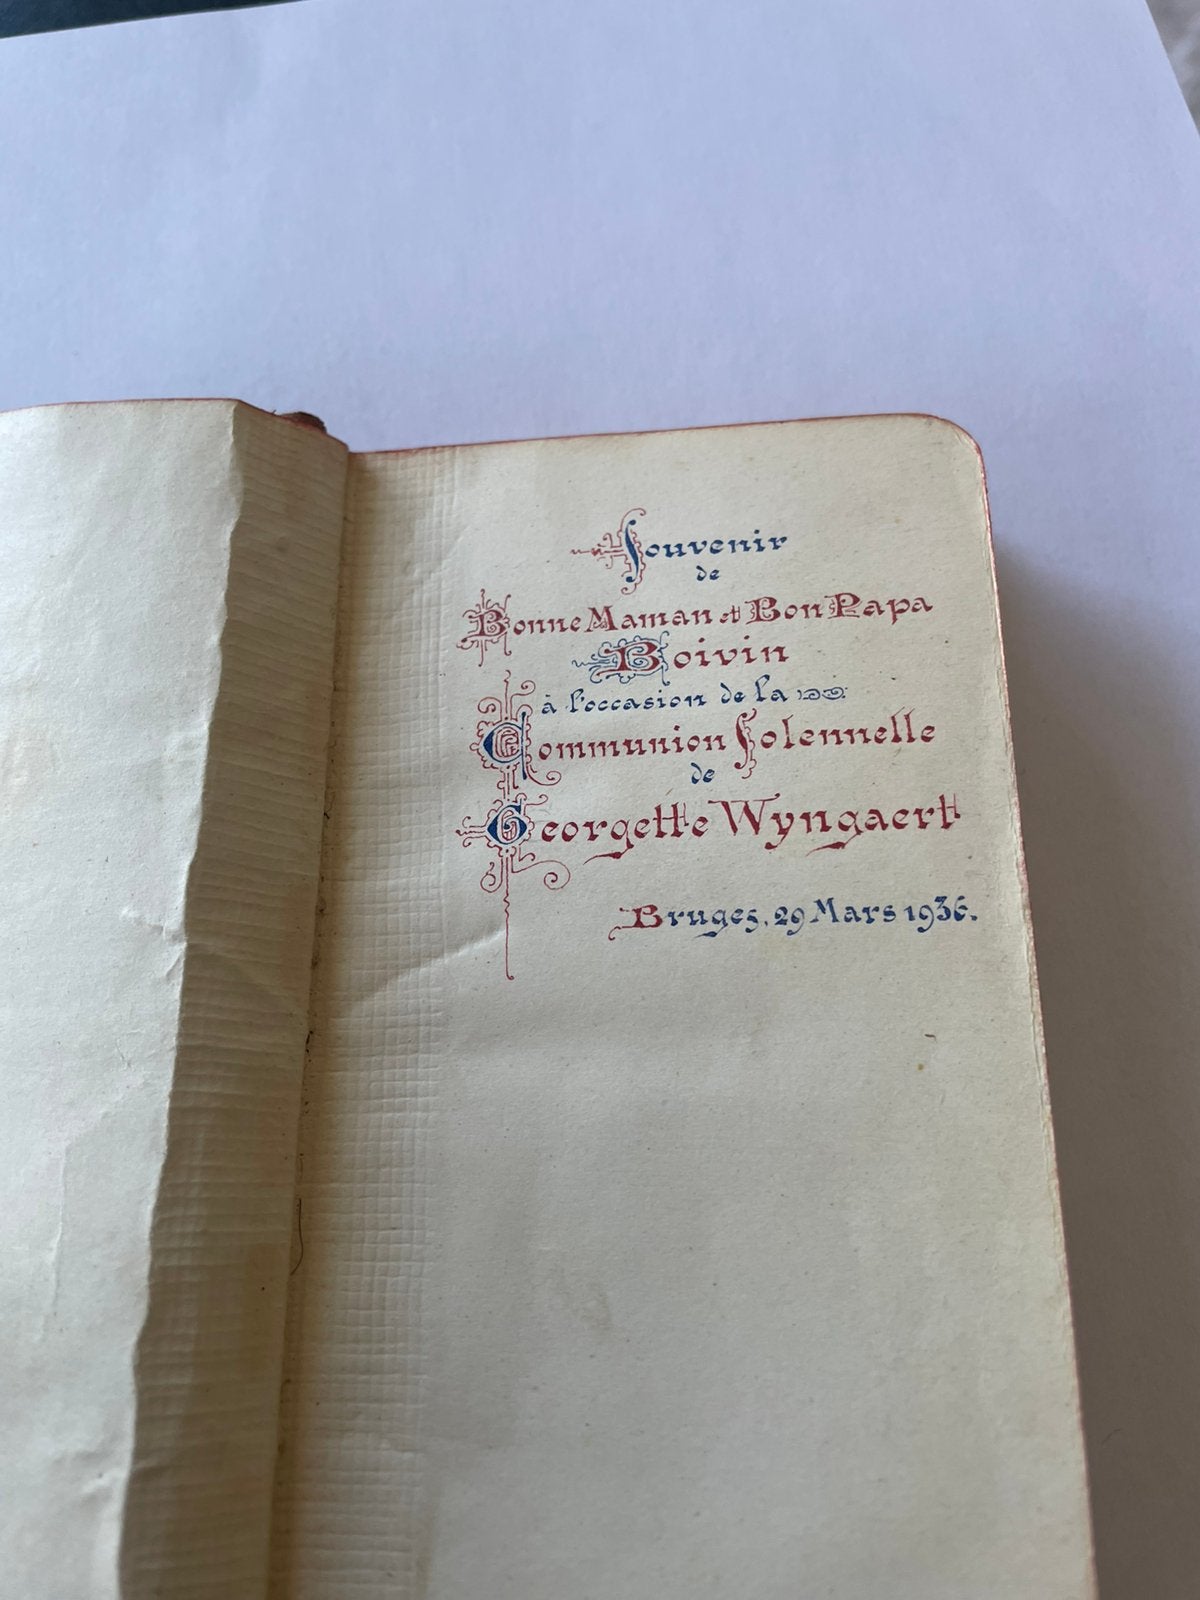 Souvenir
de
Bonne Maman et Bon Papa
Boivin
à l'occasion de la
Communion Solennelle
de
Georgette Wyngaert
Bruges, 29 Mars 1936.